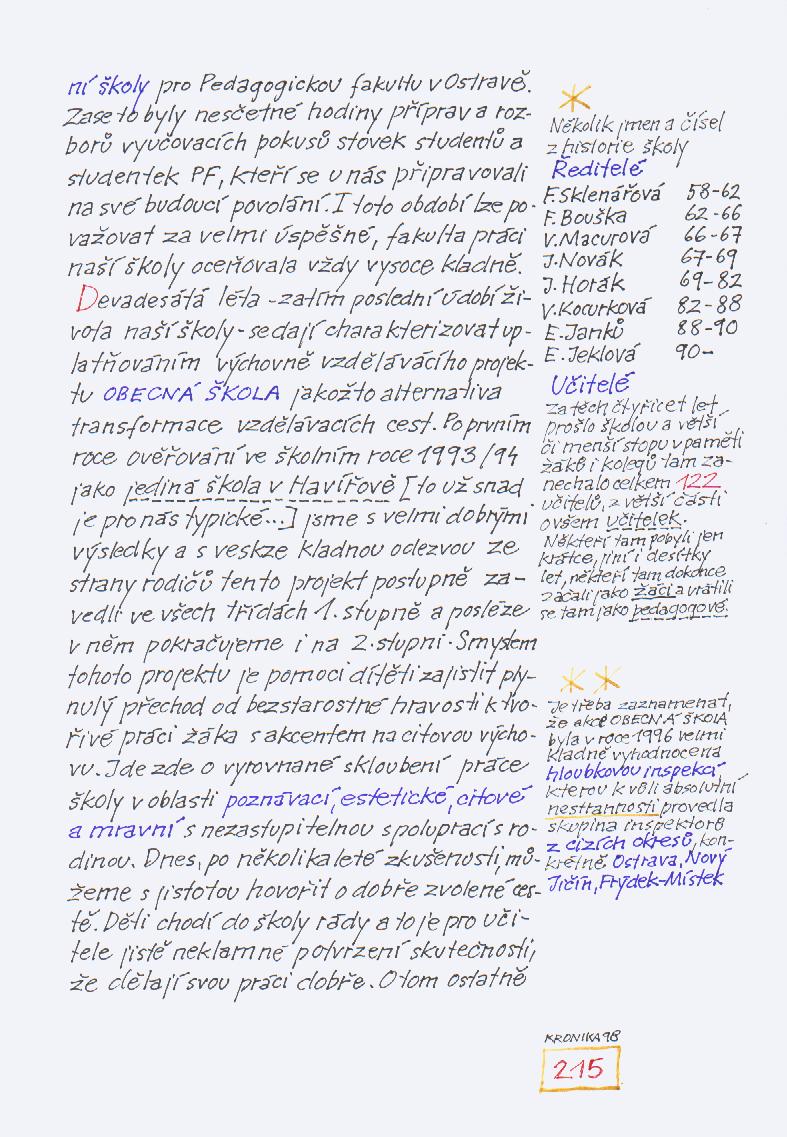 ní školy pro Pedagogickou fakultu v Ostravě.
Zase to byly nesčetné hodiny příprav a roz-
borů vyučovacích pokusů stovek studentů a
studentek PF, kteří se u nás připravovali
na své budoucí povolání. I toto období lze po-
važovat za velmi úspěšné, fakulta práci
naší školy oceňovala vždy vysoce kladně.
Devadesátá léta - zatím poslední údobí ži-
vota naší školy - se dají charakterizovat up-
latňováním výchovně vzdělávácího projek-
tu OBECNÁ ŠKOLA jakožto alternativa
transformace vzdělávacích cest. Po prvním
roce ověřování ve školním roce 1993/94
jako jediná škola v Havířově [to už snad
je pro nás typické...] jsme s velmi dobrými
výsledky a s veskze kladnou odezvou ze
strany rodičů tento projekt postupně za-
vedli ve všech třídách 1. stupně a posléze
v něm pokračujeme i na 2. stupni. Smyslem
tohoto projektu je pomoci dítěti zajistit ply-
nulý přechod od bezstarostné hravosti k tvo-
řivé práci žáka s akcentem na citovou výcho-
vu. Jde zde o vyrovnané skloubení práce
školy v oblasti poznávací, estetické, citové
a mravní s nezastupitelnou spoluprací s ro-
dinou. Dnes, po několikaleté zkušenosti, mů-
žeme s jistotou hovořit o dobře zvolené ces-
tě. Děti chodí do školy rády a to je pro uči-
tele jistě neklamné potvrzení skutečnosti,
že dělají svou práci dobře. O tom ostatně
*
Několik jmen a čísel
z historie školy
Ředitelé
F. Sklenářová 58-62
F. Bouška 62-66
V. Macurová 66-67
J. Novák 67-69
J. Horák 69-82
V. Kocurková 82-88
E. Janků 88-90
E. Jeklová 90-
Učitelé
Za těch čtyřicet let
prošlo školou a větší
či menší stopu v paměti
žáků i kolegů tam za-
nechalo celkem 122
učitelů, z větší části
ovšem učitelek.
Někteří tam pobyli jen
krátce, jiní i desítky
let, někteří tam dokonce
začali jako žáci a vrátili
se tam jako pedagogové.
* *
Je třeba zaznamenat,
že akce OBECNÁ ŠKOLA
byla v roce 1996 velmi
kladně vyhodnocena
hloubkovou inspekcí,
kterou k vůli absolutní
nestrannosti provedla
skupina inspektorů
z cizích okresů, kon-
krétně Ostrava, Nový
Jičín, Frýdek-Místek
KRONIKA 98
215